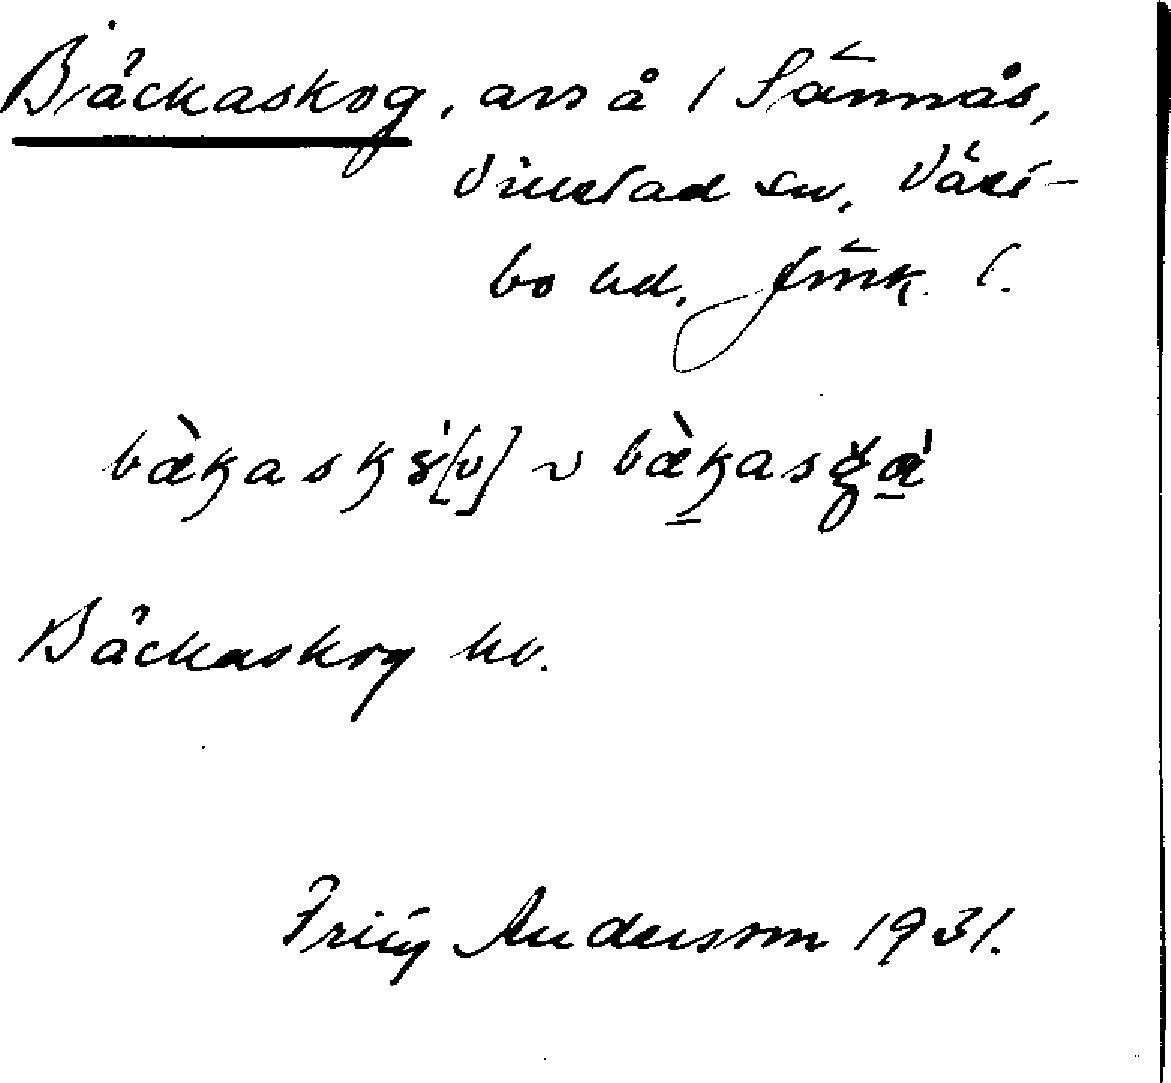 Bäckaskog, avs å 1 Sännås,
Villstad sn, Väst-
bo hd, Jmk. l.
bæ̀kask [v] ~ bæ̀kas
Bäckaskog hv.
Fritz Andersson 1931.